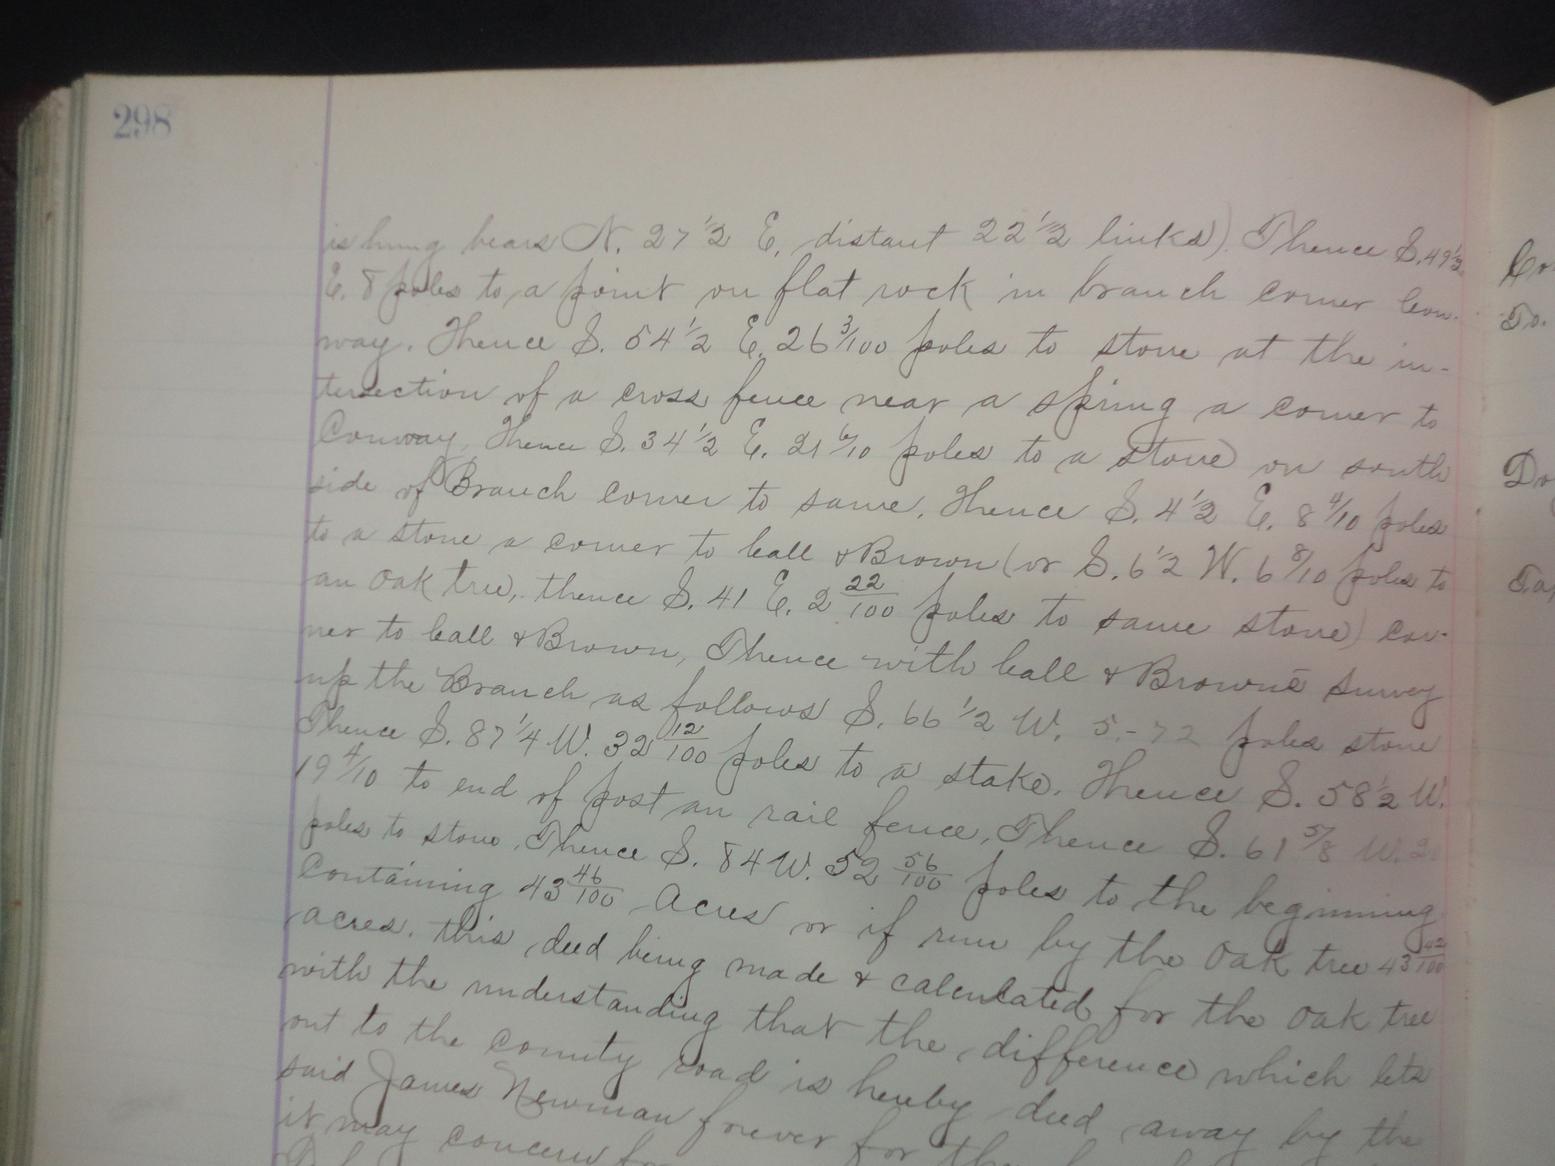 298
is hung bears N. 27 1/2 E. distant 22 1/2 links) Thence S. 49 1/2
E. 8 poles to a point on flat rock in branch corner Con-
way. Thence S. 54 1/2 E. 26 3/100 poles to stone at the in-
tersection of a cross fence near a spring a corner to
Conway, Thence S. 34 1/2 E. 21 6/10 poles to a stone on south
side of Branch corner to same, Thence S. 4 1/2 E. 8 4/10 poles
to a stone a corner to Call & Brown (or S. 6 1/2 W. 6 8/10 poles to
an oak tree, thence S. 41 E. 2 22/100 poles to same stone) cor-
ner to Call & Brown, Thence with Call & Browns survey
up the Branch as follows S. 66 1/2 W. 5.-72 poles stone
Thence S. 87 1/4 W. 32 12/100 poles to a stake. Thence S. 58 1/2 W.
19 4/10 to end of post an rail fence, Thence S. 61 5/8 W.
poles to stone, Thence S. 84 W. 52 56/100 poles to the beginning
Containing 43 46/100 Acres or if run by the oak tree 43 42/100
acres. this deed being made & calculated for the oak tree
with the understanding that the difference which lets
out to the county road is hereby deed away by the
said James Newman forever for the
it may concern
Do
To.